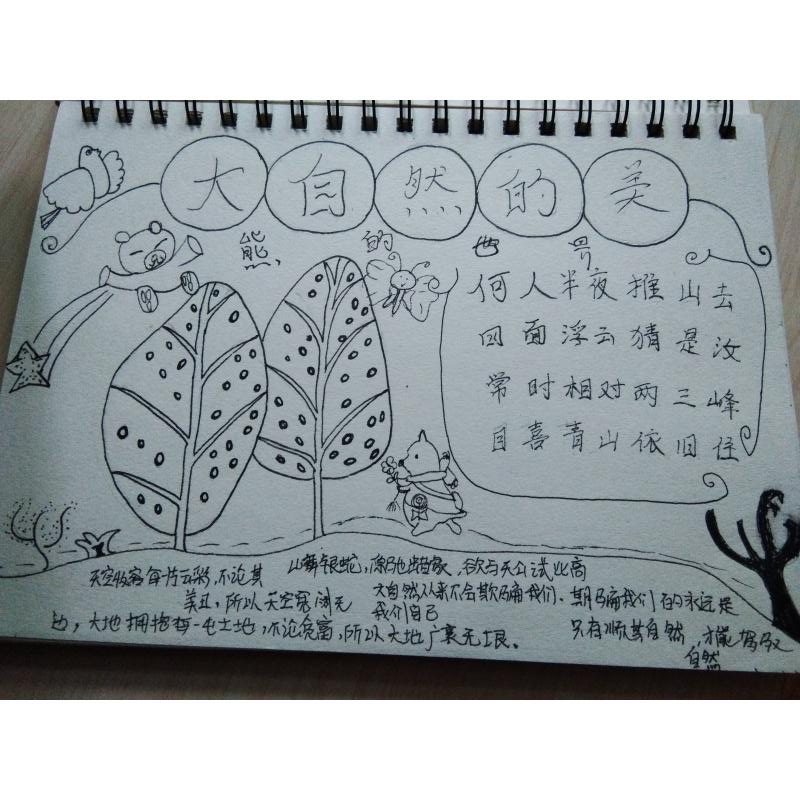 大自然的美
熊的世界
何人半夜推山去
四面浮云猜是汝
常时相对两三峰
目喜青山依旧住
天空收容每片云彩,不论其
美丑,所以天空宽阔无
边,大地拥抱每一屯土地,不论贫富,所以大地广袤无垠。
山舞银蛇,原驰蜡象,欲与天公试比高
大自然从来不会欺骗我们、期骗我们的永远是
我们自己
只有顺其自然,才能驾驭
自然